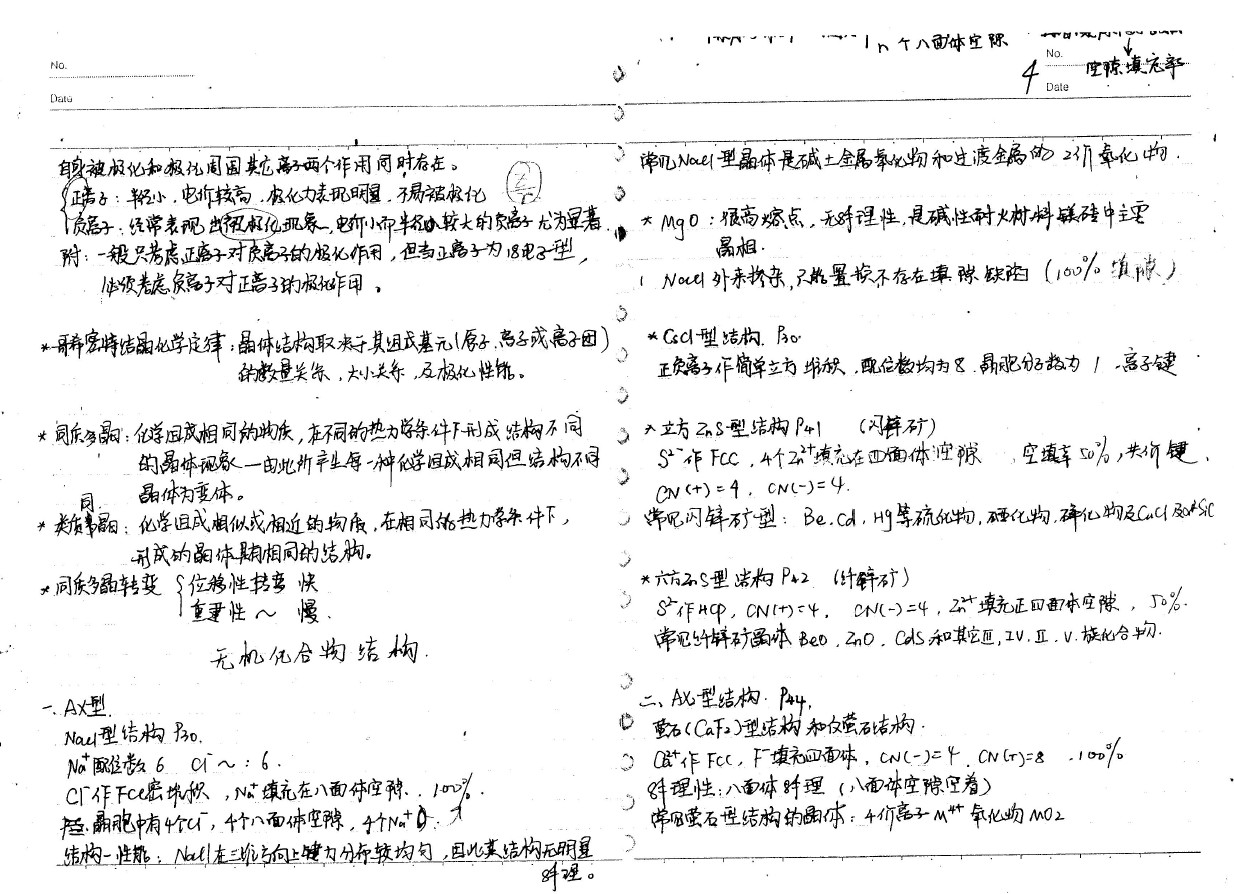 No.
Date
自身被极化和极化周围其它离子两个作用同时存在。
正离子：半径小，电价较高，极化力表现明显，不易被极化
Z/r
负离子：经常表现出被极化现象，电价小而半径较大的负离子尤为显著
附：一般只考虑正离子对负离子的极化作用，但当正离子为18电子型，
必须考虑负离子对正离子的极化作用。
*哥希密特结晶化学定律：晶体结构取决于其组成基元（原子、离子或离子团）
的数量关系，大小关系，及极化性能。
*同质多晶：化学组成相同的物质，在不同的热力学条件下形成结构不同
的晶体现象—由此所产生每一种化学组成相同但结构不同
晶体为变体。
同
*类质晶：化学组成相似或相近的物质，在相同的热力学条件下，
形成的晶体具有相同的结构。
*同质多晶转变 { 位移性转变 快
重建性～ 慢.
无机化合物结构.
一. AX型.
NaCl型结构 P30.
Na⁺配位数 6 Cl⁻～：6.
Cl⁻作Fcc密堆积，Na⁺填充在八面体空隙. 100%.
晶胞中有4个Cl⁻，4个八面体空隙，4个Na⁺
结构—性能：NaCl在三维方向上键力分布较均匀，因此其结构无明显
解理。
n个八面体空隙
No.
空隙填充率
4
Date
常见NaCl型晶体是碱土金属氧化物和过渡金属的2价氧化物.
* MgO：很高熔点，无解理性，是碱性耐火材料镁砖中主要
晶相.
NaCl外来掺杂，只能置换不存在填隙缺陷（100%填隙）
*CsCl型结构. P30.
正负离子作简单立方堆积，配位数均为8，晶胞分子数为1，离子键
*立方ZnS型结构 P41 （闪锌矿）
S²⁻作FCC，4个Zn²⁺填充在四面体空隙 空填率50%，共价键.
CN(+)=4，CN(-)=4.
常见闪锌矿型：Be.Cd.Hg等硫化物，硒化物，碲化物及CuCl及α-SiC
*六方ZnS型结构 P42 （纤锌矿）
S²⁻作HCP，CN(+)=4， CN(-)=4，Zn²⁺填充正四面体空隙，50%.
常见纤锌矿晶体 BeO，ZnO，CdS和其它Ⅲ，Ⅳ，Ⅱ，Ⅴ族化合物.
二、AX₂型结构. P44.
萤石(CaF₂)型结构和反萤石结构.
Ca²⁺作FCC，F⁻填充四面体，CN(-)=4，CN(+)=8 .100%
解理性：八面体解理（八面体空隙空着）
常见萤石型结构的晶体：4价离子M⁴⁺氧化物MO2